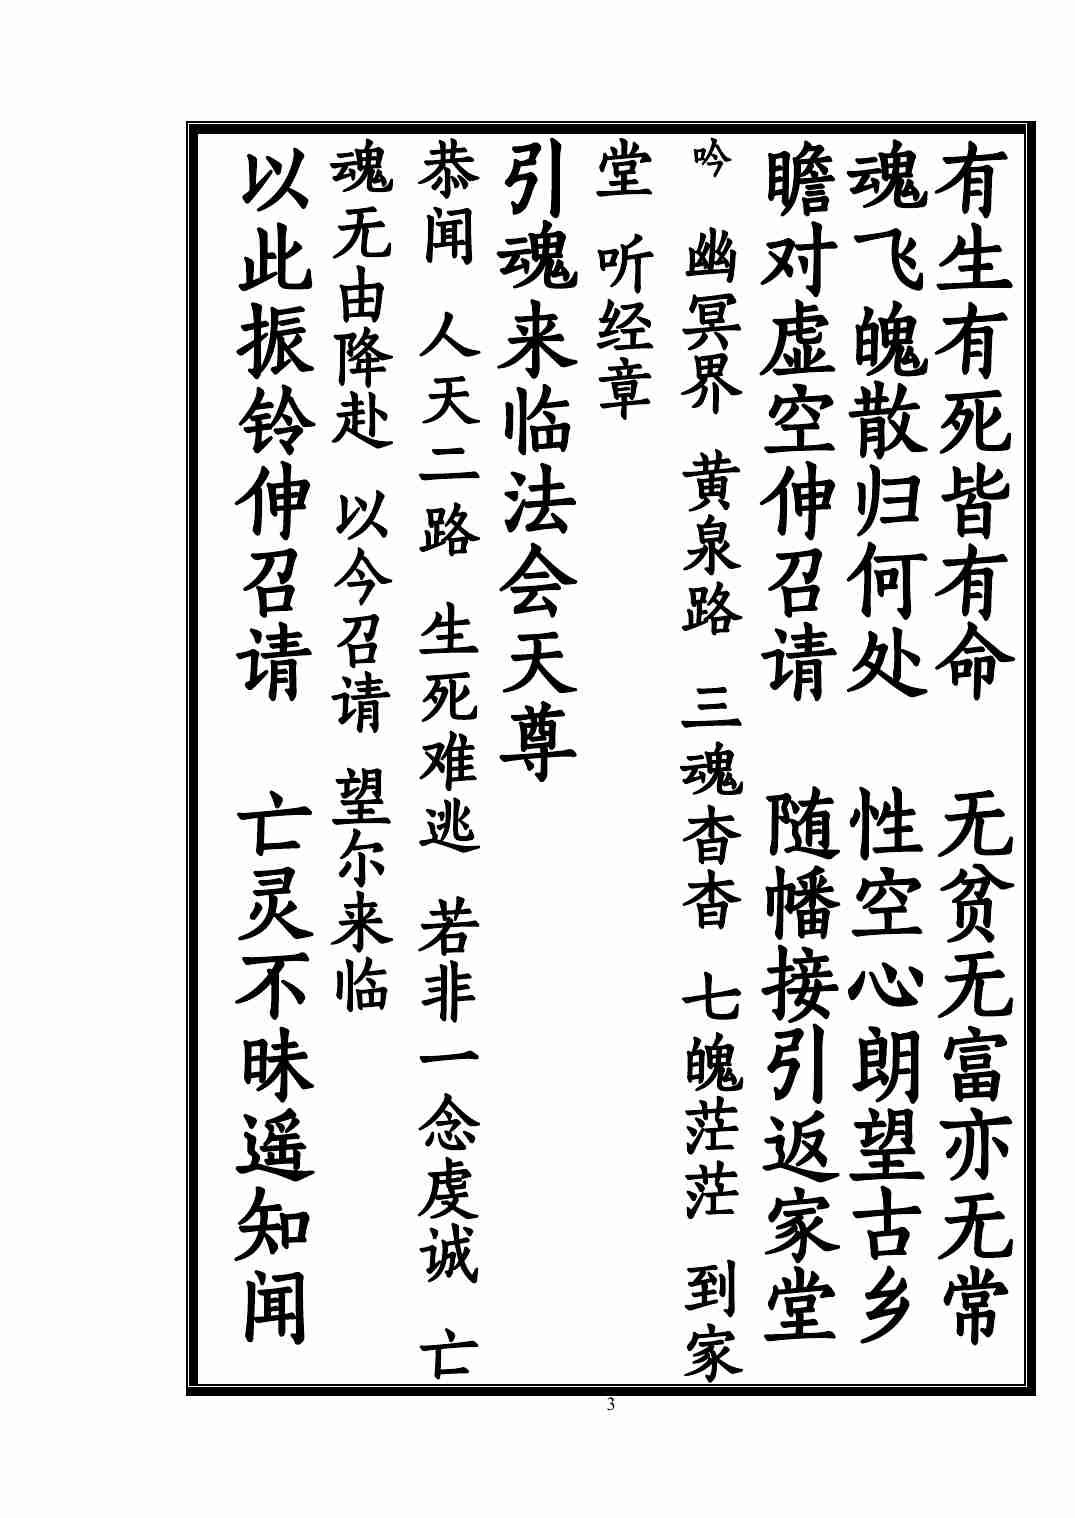 有生有死皆有命　无贫无富亦无常
魂飞魄散归何处　性空心朗望古乡
瞻对虚空伸召请　随幡接引返家堂
吟　幽冥界　黄泉路　三魂杳杳　七魄茫茫　到家
堂　听经章
引魂来临法会天尊
恭闻　人天二路　生死难逃　若非一念虔诚　亡
魂无由降赴　以今召请　望尔来临
以此振铃伸召请　亡灵不昧遥知闻
3